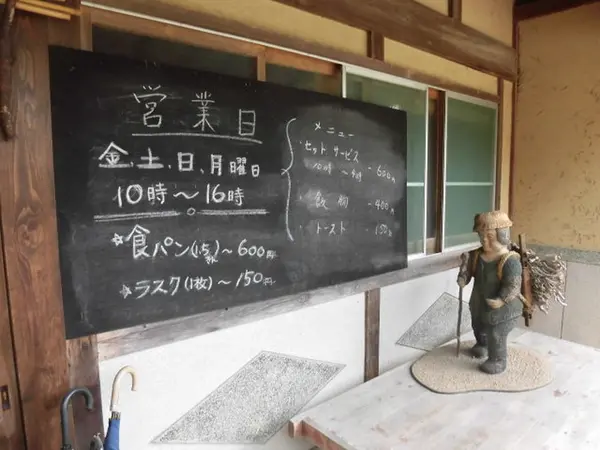 営業日
金、土、日、月曜日
10時〜16時
☆食パン(1.5斤)〜600円
☆ラスク(1枚)〜150円
メニュー
・セットサービス
10時〜 - 600円
・飲物 - 400円
・トースト - 150円